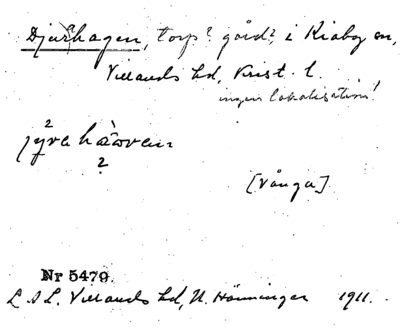 Djurhagen, torp? gård? i Kiaby sn,
Villands hd, Krist. l.
ingen lokalisation!
2
jyrahàⱥven
2
[Vånga]
Nr 5479.
L S L. Villands hd, N. Hänninger 1911.